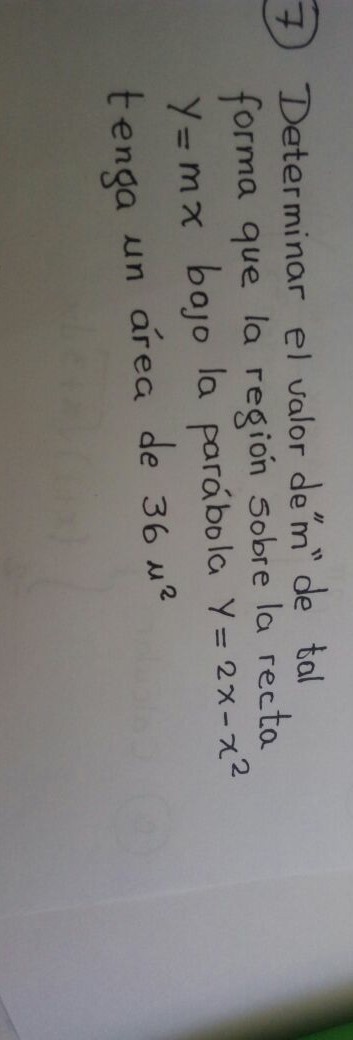 7 Determinar el valor de "m" de tal
forma que la región sobre la recta
y = mx bajo la parábola y = 2x - x²
tenga un área de 36 u²